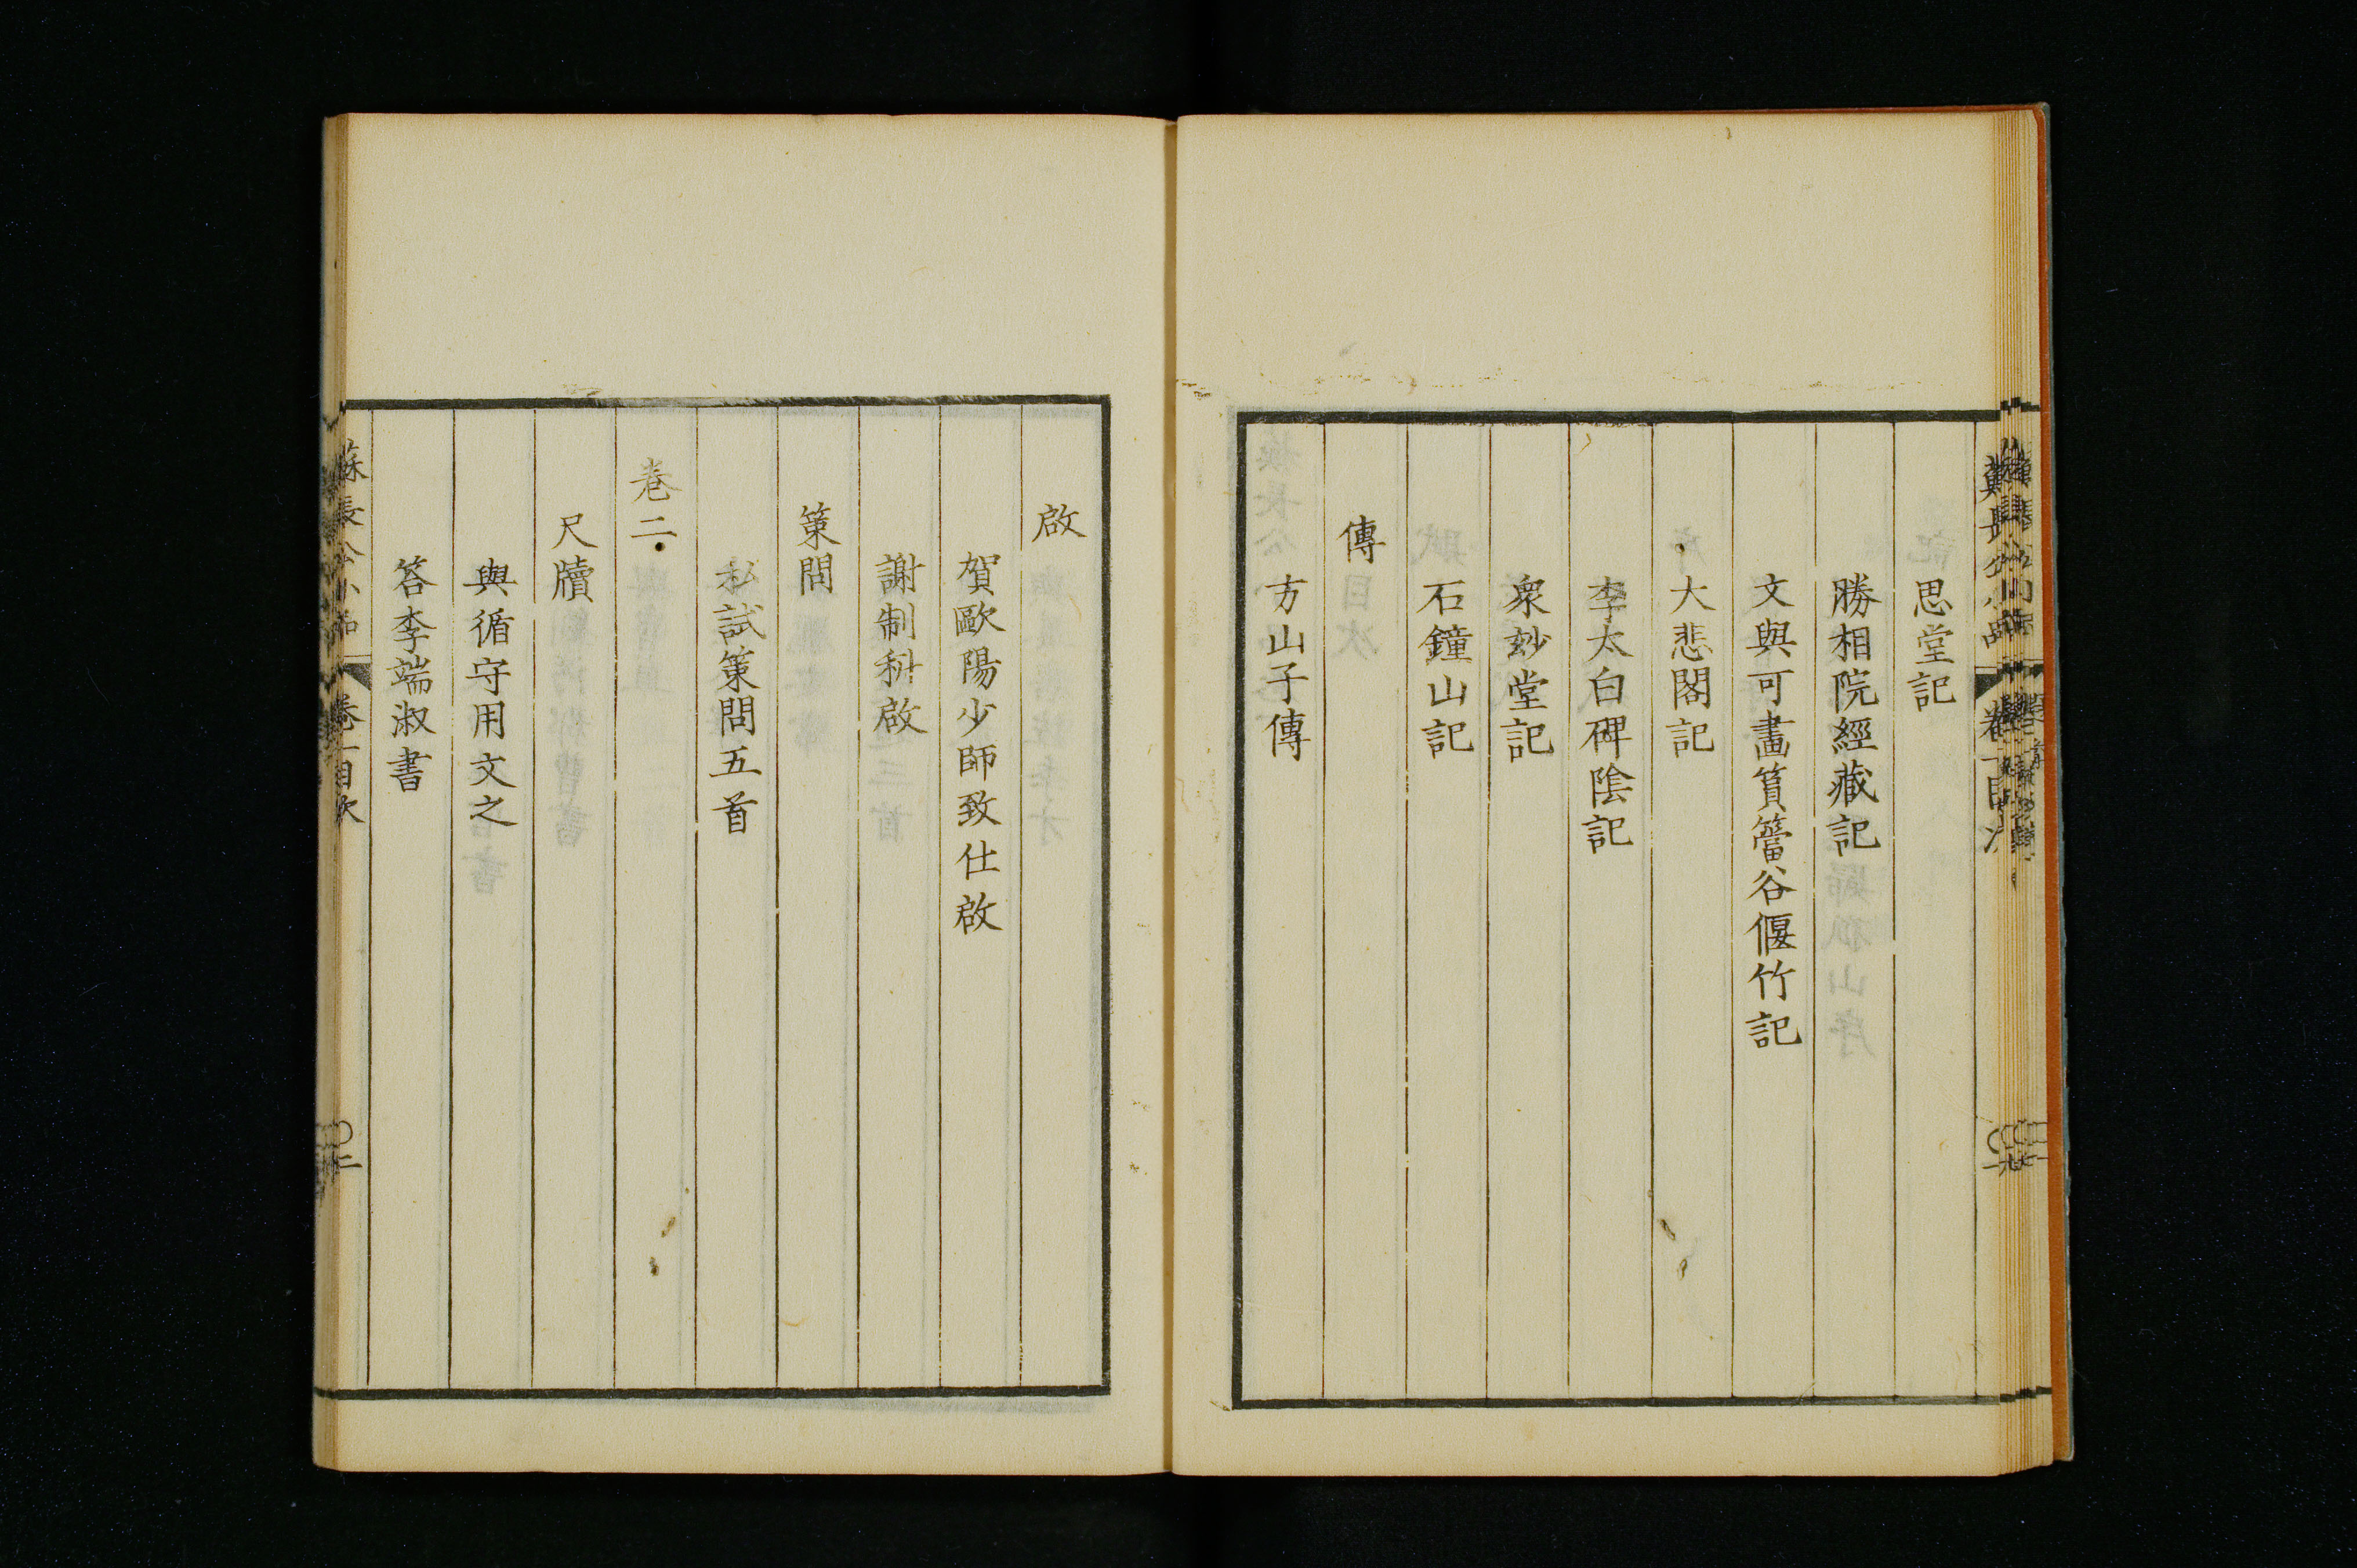 思堂記
勝相院經藏記
文與可畫篔簹谷偃竹記
大悲閣記
李太白碑陰記
衆玅堂記
石鐘山記
傳
方山子傳
啟
賀歐陽少師致仕啟
謝制科啟
策問
私試策問五首
卷二
尺牘
與循守用文之
答李端淑書
蘇長公小品
卷一目次